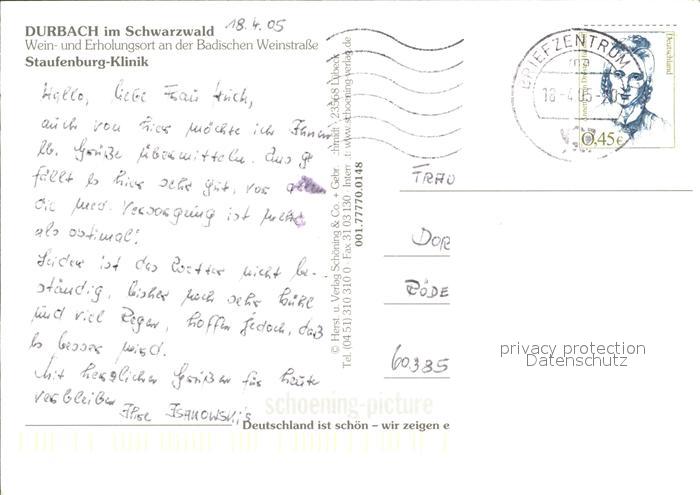 DURBACH im Schwarzwald 18.4.05
Wein- und Erholungsort an der Badischen Weinstraße
Staufenburg-Klinik
Hallo, liebe Frau
auch von hier möchte ich Ihnen
lb. Grüße übermitteln. Uns g
fällt es hier sehr gut, vor allem
die med. Versorgung ist mehr
als optimal!
Leider ist das Wetter nicht be-
ständig, bisher noch sehr kühl
und viel Regen, hoffen jedoch, daß
es besser wird.
Mit herzlichen Grüßen für heute
verbleiben
Deutschland ist schön – wir zeigen e
© Herst. u. Verlag Schöning & Co. + Gebr. chmidt, 23568 Lübeck
Tel. (04 51) 310 310 0 Fax 31 03 130 Intern t: www.schoening-verlag.de
001.77770.0148
BRIEFZENTRUM
18-4.05-20
Deutschland
0,45€
FRAU
DOR
RÖDE
60385
privacy protection
Datenschutz
schoening-picture